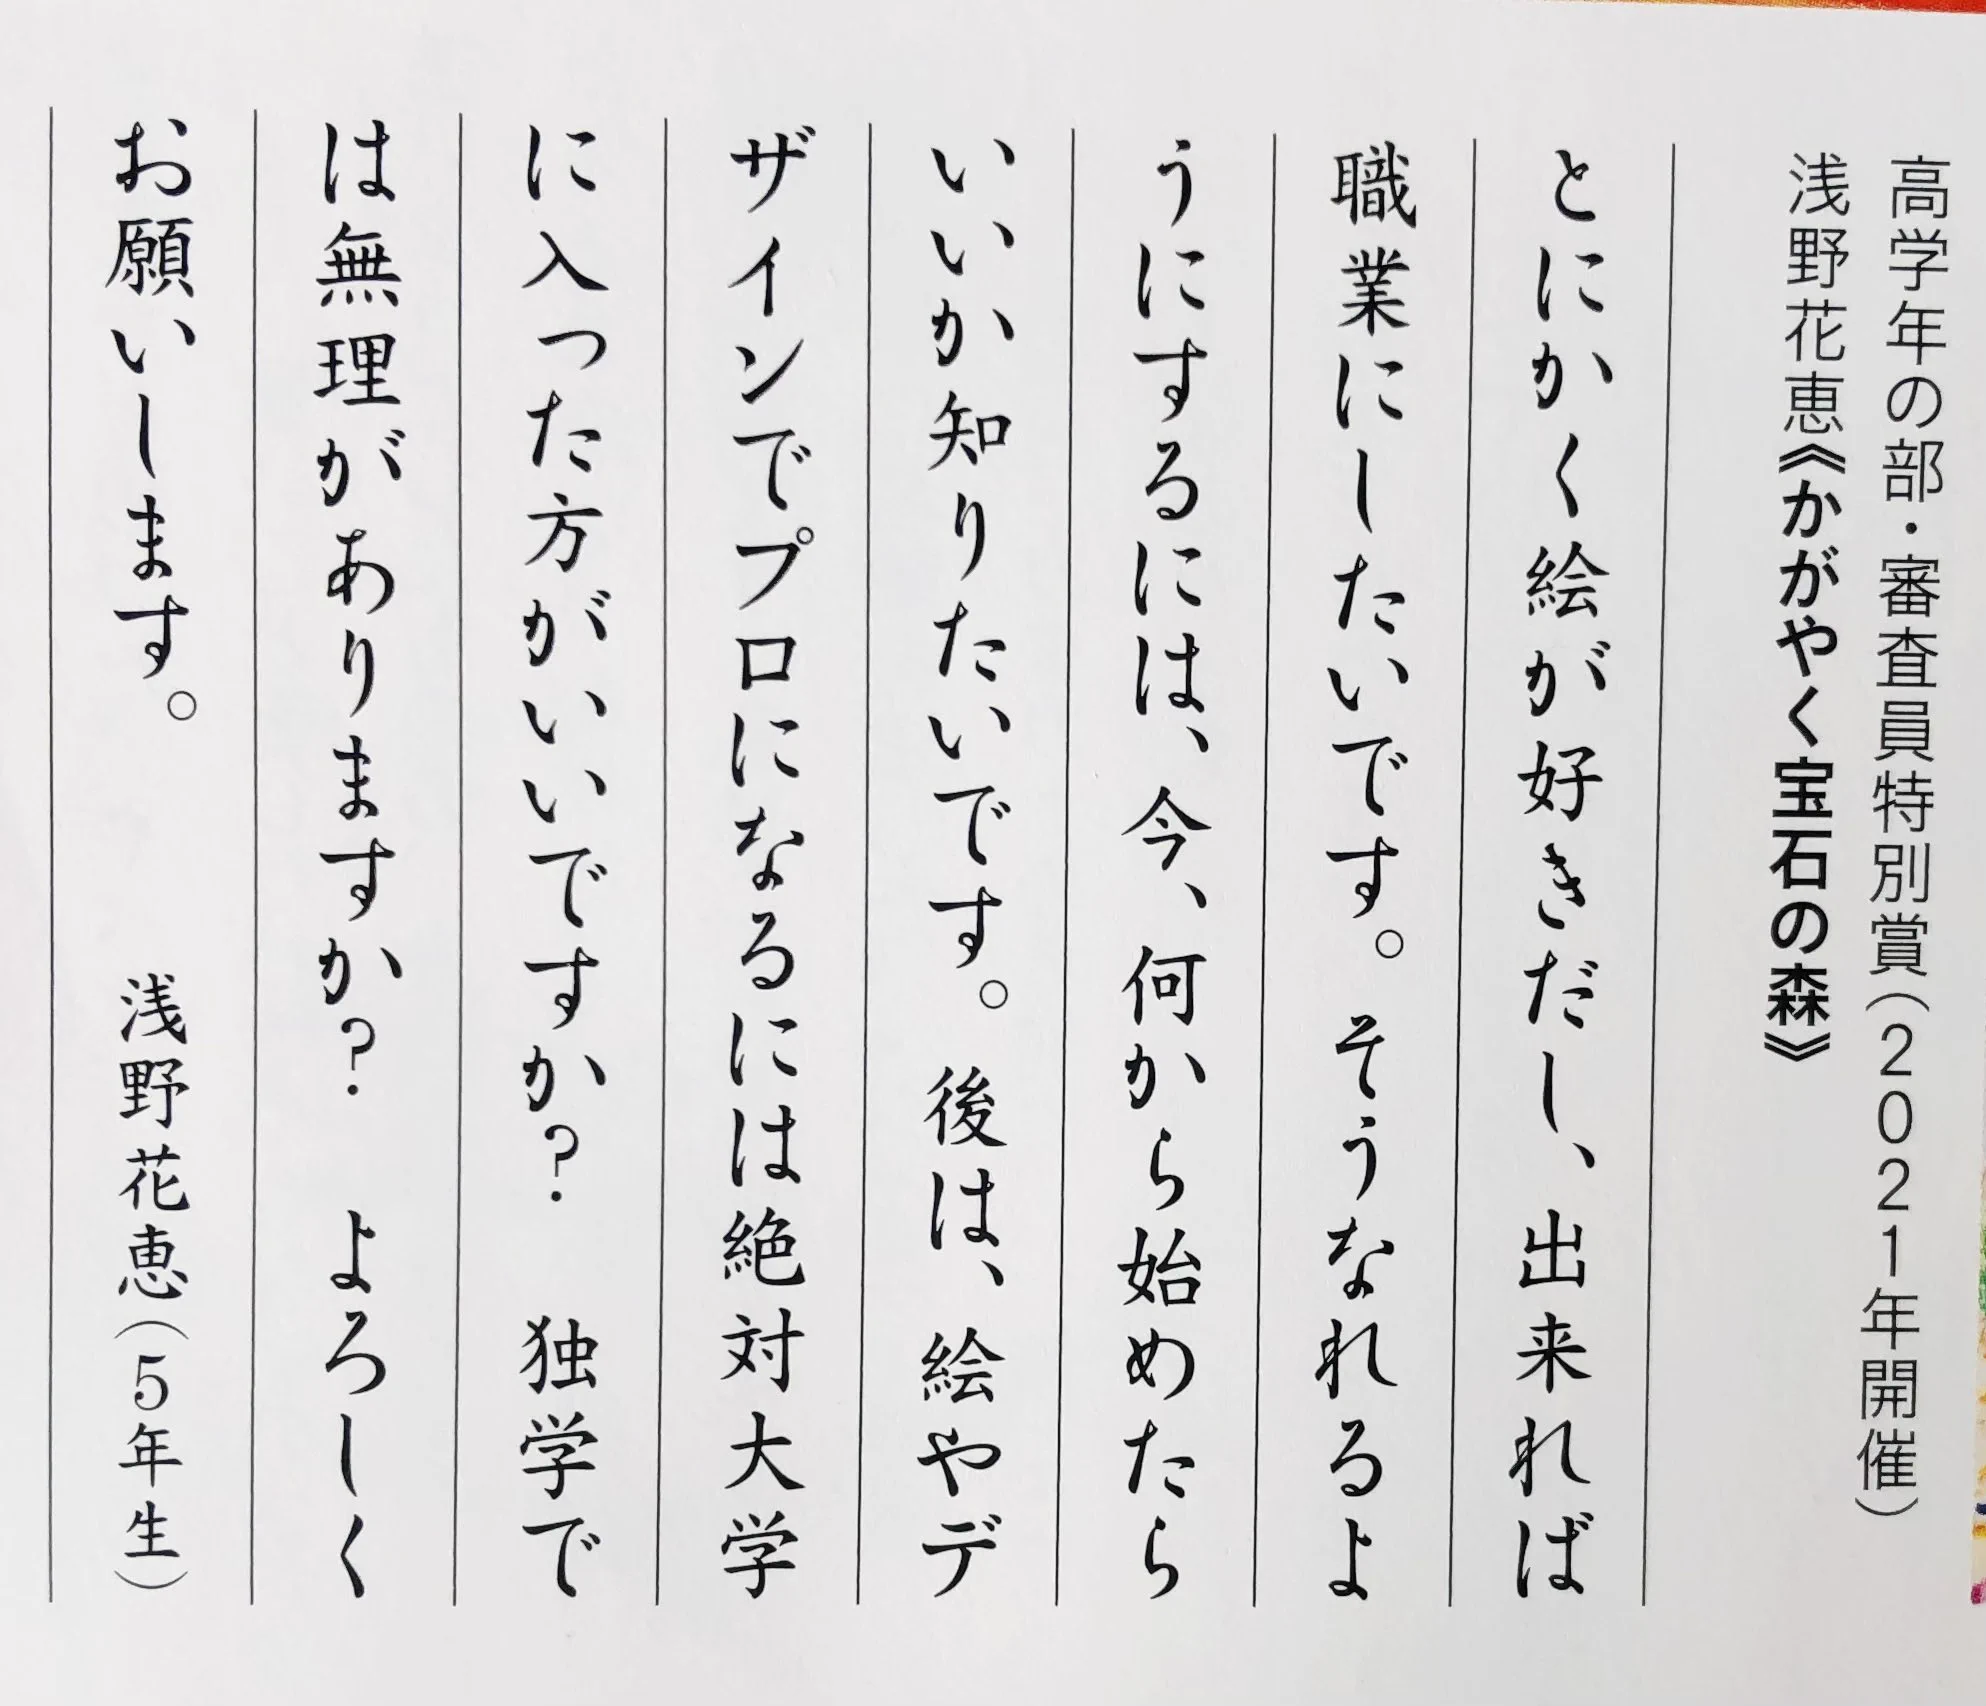 高学年の部・審査員特別賞(2021年開催)
浅野花恵《かがやく宝石の森》
とにかく絵が好きだし、出来れば
職業にしたいです。そうなれるよ
うにするには、今、何から始めたら
いいか知りたいです。後は、絵やデ
ザインでプロになるには絶対大学
に入った方がいいですか? 独学で
は無理がありますか? よろしく
お願いします。 浅野花恵(5年生)